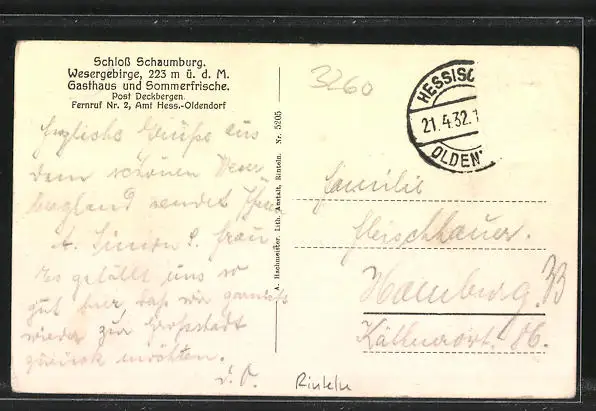 Schloß Schaumburg.
Wesergebirge, 223 m ü. d. M.
Gasthaus und Sommerfrische.
Post Deckbergen.
Fernruf Nr. 2, Amt Hess.-Oldendorf
3260
HESSISC
21.4.32.1
OLDEN
Herzliche Grüße aus
dem schönen Weser
bergland sendet Ihnen
A. Simon u. Frau
Es gefällt uns so
gut hier, daß wir garnicht
wieder zur Großstadt
zurück möchten.
d. O.
A. Hachmeister, Lith. Anstalt, Rinteln. Nr. 5205
Familie
Fleischhauer.
Hamburg 33
86.
Rinteln